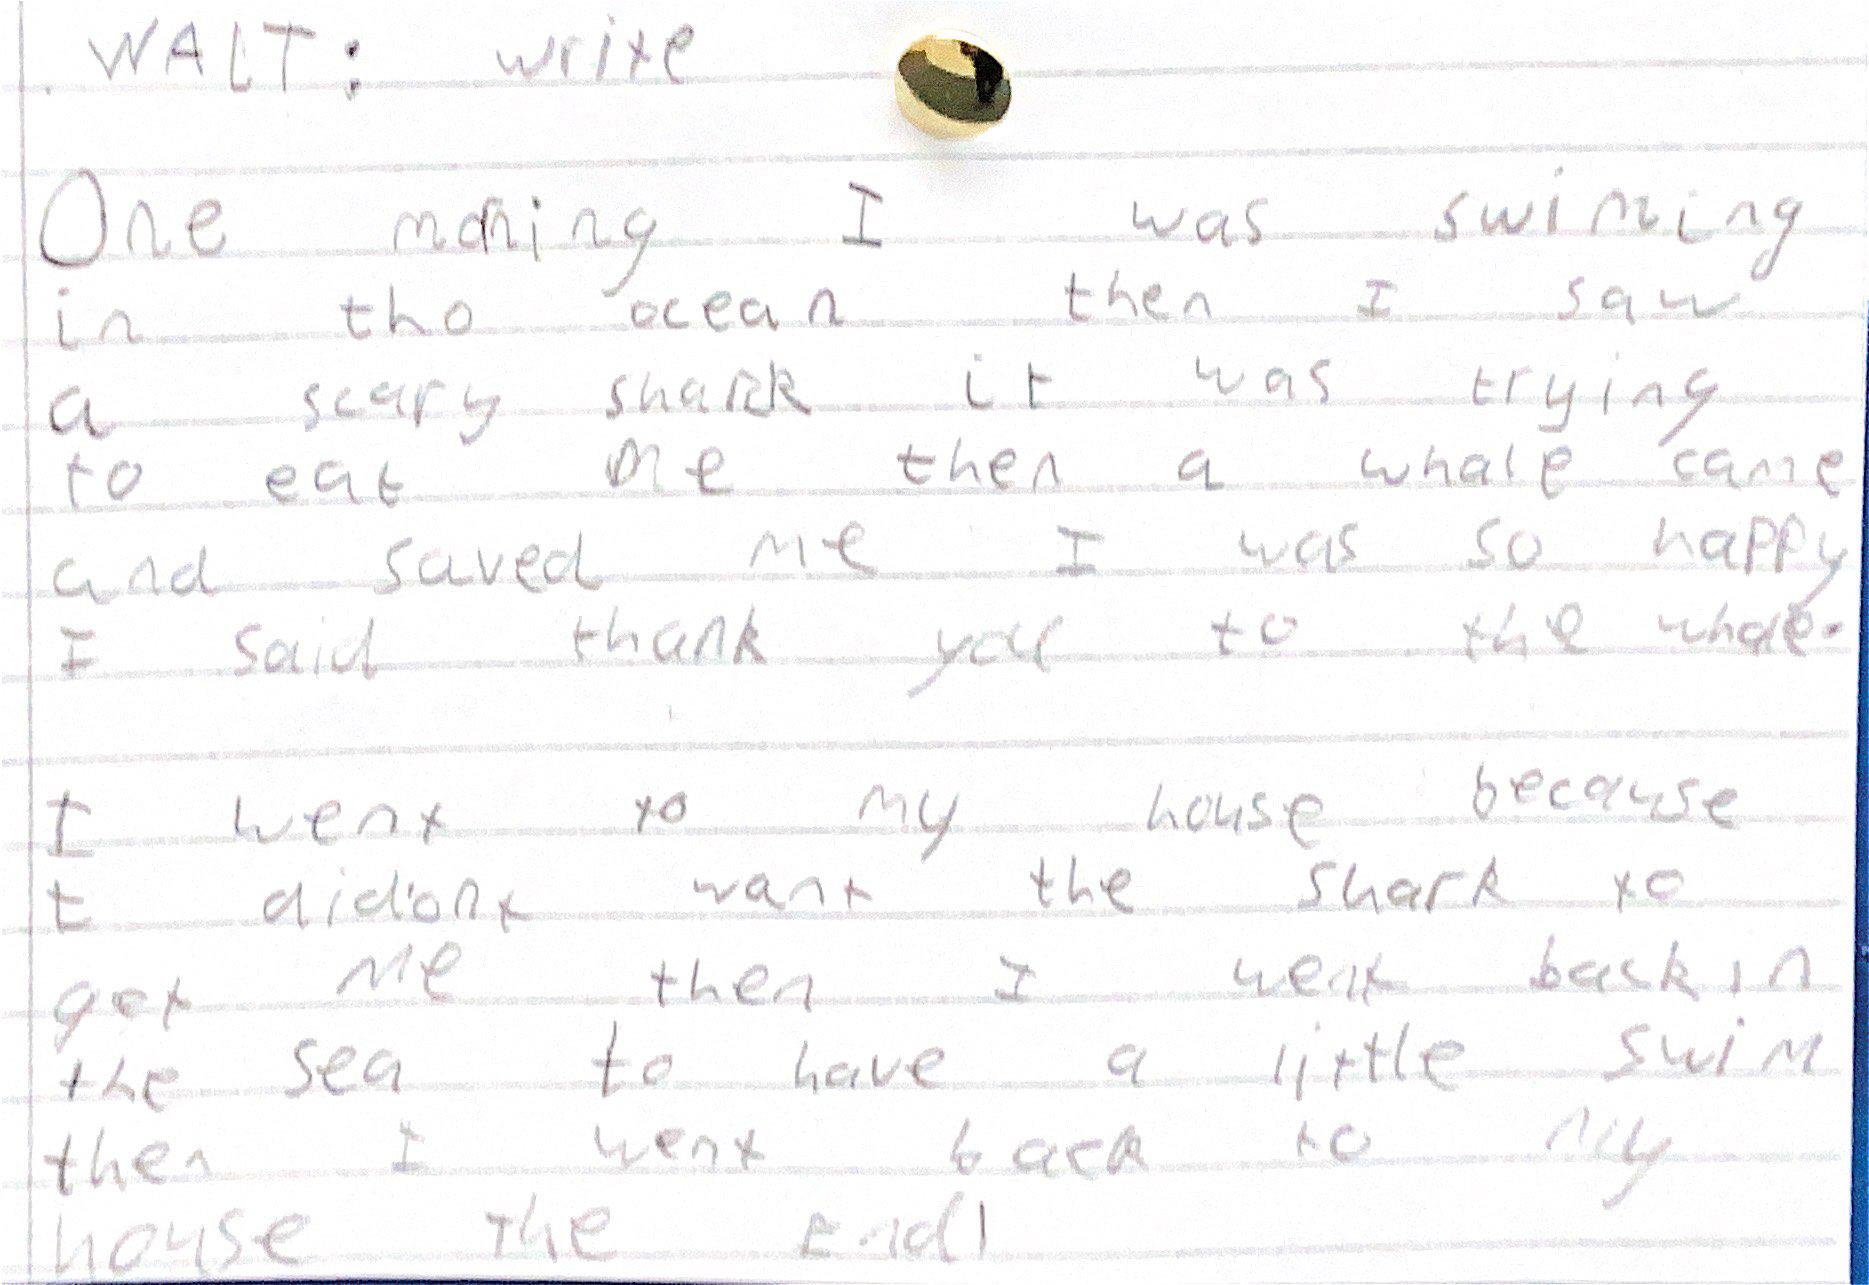 WALT: write
One moning I was swiming
in tho ocean then I saw
a scary shark it was trying
to eat me then a whale came
and saved me I was so happy
I said thank you to the whale.
I went to my house because
I did'ont want the shark to
get me then I went back in
the sea to have a little swim
then I went back to my
house The End!